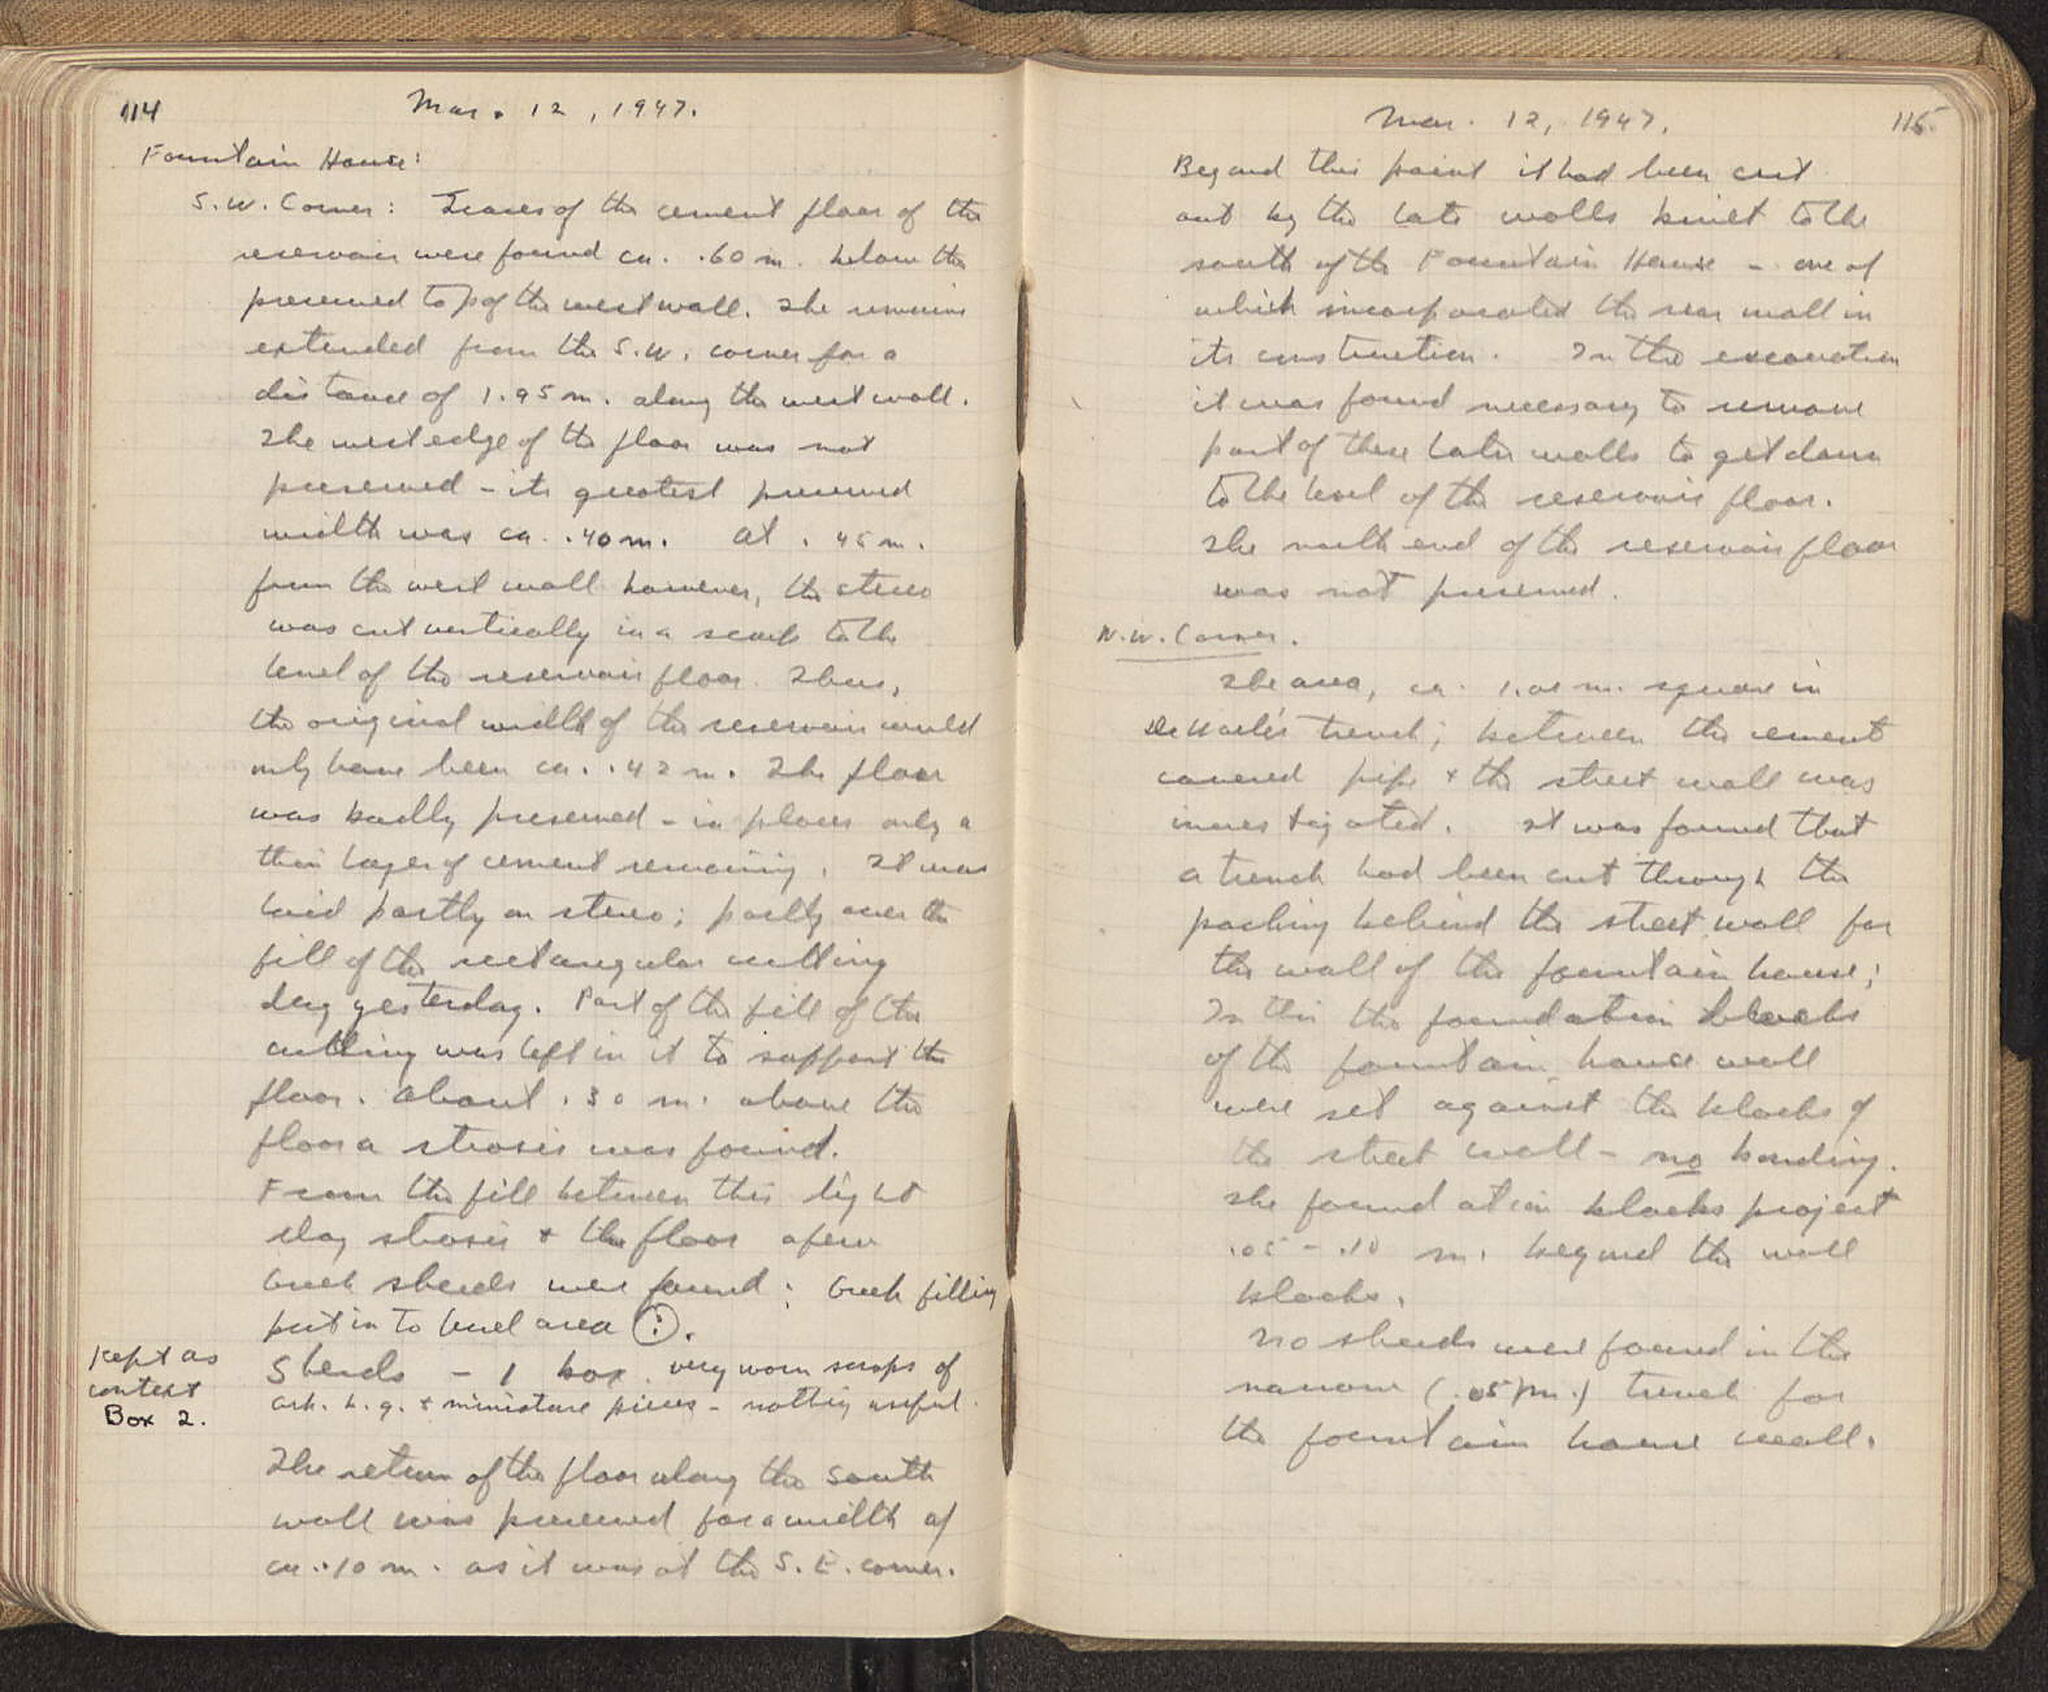 114
Mar. 12, 1947.
Fountain House:
S.W. Corner: Traces of the cement floor of the
reservoir were found ca. .60 m. below the
preserved top of the west wall. The remains
extended from the S.W. corner for a
distance of 1.95 m. along the west wall.
The west edge of the floor was not
preserved - its greatest preserved
width was ca. .40 m. At .45 m.
from the west wall however, the stereo
was cut vertically in a scarp to the
level of the reservoir floor. Thus,
the original width of the reservoir could
only have been ca. .42 m. The floor
was badly preserved - in places only a
thin layer of cement remaining. It was
laid partly on stereo; partly over the
fill of the rectangular cutting
dug yesterday. Part of the fill of the
cutting was left in it to support the
floor. About .30 m. above the
floor a strosis was found.
From the fill between this light
clay strosis + the floor a few
Greek sherds were found; Greek filling
put in to level area (?).
Kept as
context
Box 2.
Sherds - 1 box. very worn scraps of
arh. b.g. + miniature pieces - nothing useful.
The return of the floor along the south
wall was preserved for a width of
ca. .10 m. as it was at the S.E. corner.
Mar. 12, 1947.
115
Beyond this point it had been cut
out by the late walls built to the
south of the Fountain House - one of
which incorporated the rear wall in
its construction. In the excavation
it was found necessary to remove
part of these later walls to get down
to the level of the reservoir floor.
The north end of the reservoir floor
was not preserved.
N.W. Corner.
The area, ca. 1.01 m. square in
De Waele's trench; between the cement
covered pipe + the street wall was
investigated. It was found that
a trench had been cut through the
packing behind the street wall for
the wall of the fountain house;
In this the foundation blocks
of the fountain house wall
were set against the blocks of
the street wall - no bonding.
The foundation blocks project
.05 - .10 m. beyond the wall
blocks.
No sherds were found in the
narrow (.05 m.) trench for
the fountain house wall.